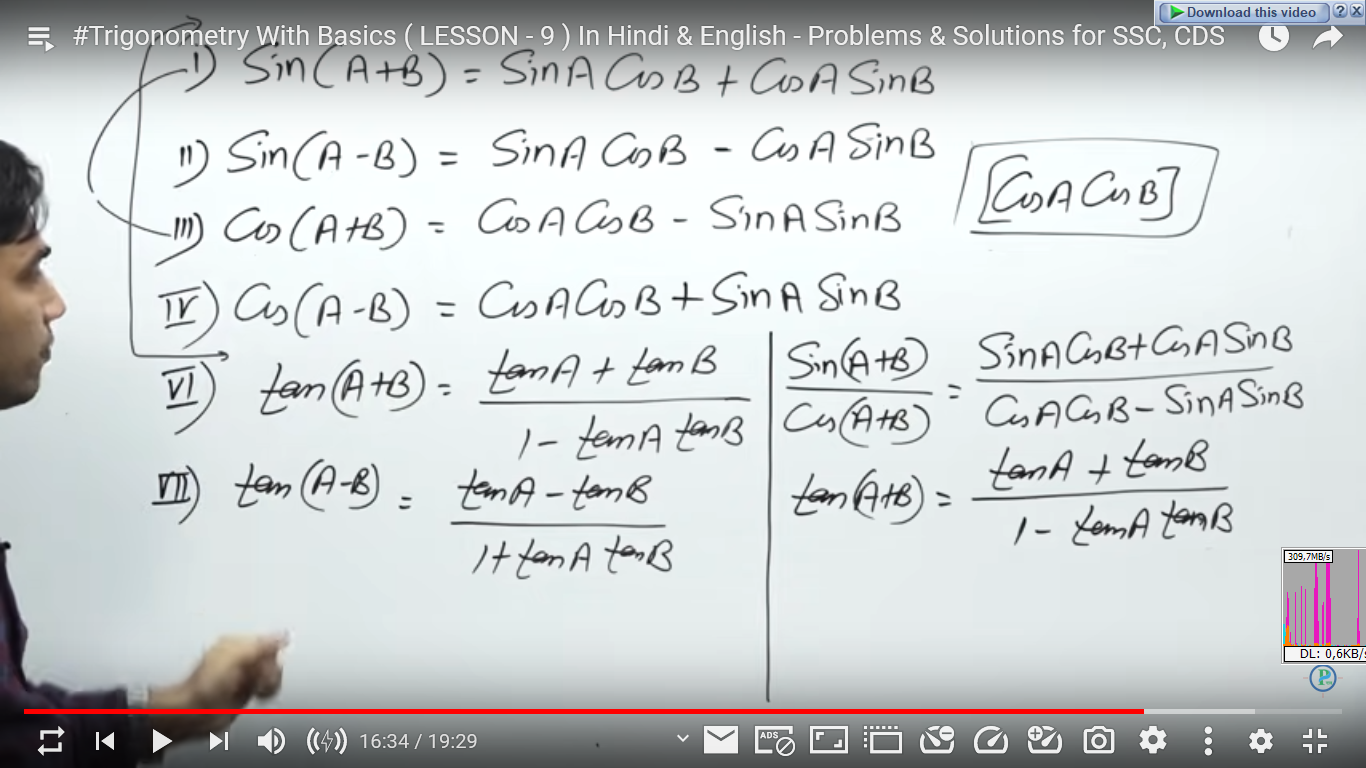 Download this video
#Trigonometry With Basics ( LESSON - 9 ) In Hindi & English - Problems & Solutions for SSC, CDS
I) Sin(A+B) = SinA CosB + CosA SinB
II) Sin(A-B) = SinA CosB - CosA SinB
[CosA CosB]
III) Cos(A+B) = CosA CosB - SinA SinB
IV) Cos(A-B) = CosA CosB + SinA SinB
VI) tan(A+B) = tanA + tanB
1 - tanA tanB
VII) tan(A-B) = tanA - tanB
1 + tanA tanB
Sin(A+B) = SinA CosB + CosA SinB
Cos(A+B) CosA CosB - SinA SinB
tan(A+B) = tanA + tanB
1 - tanA tanB
309,7MB/s
DL: 0,6KB/s
16:34 / 19:29
ADS